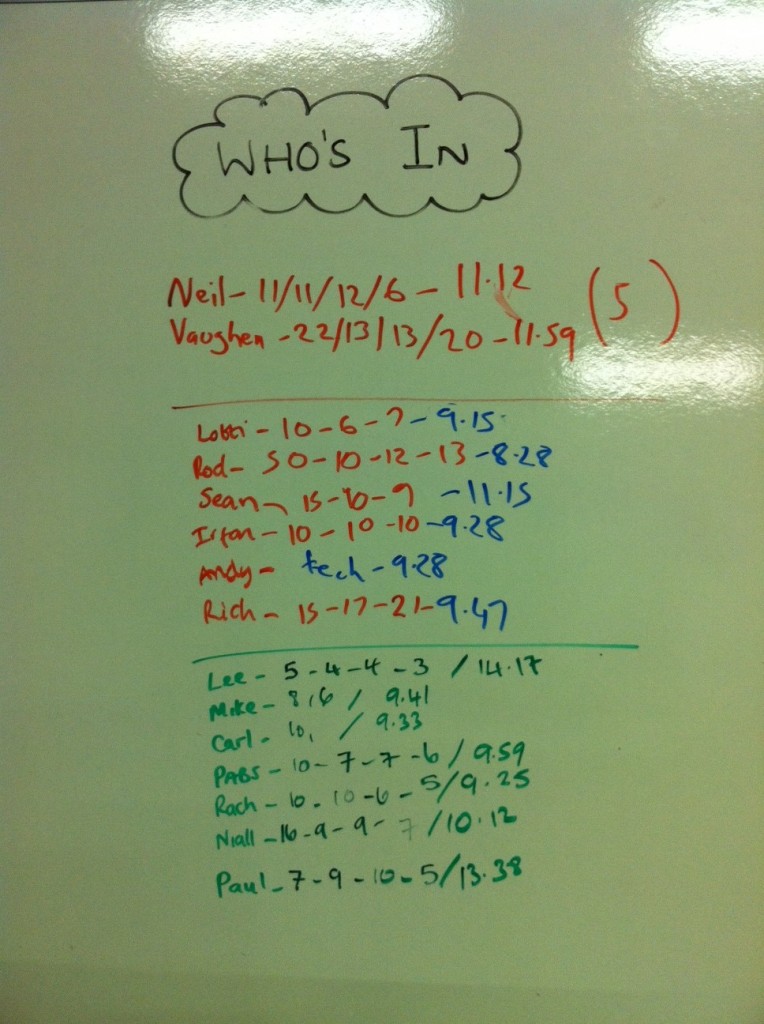 WHO'S IN
Neil - 11/11/12/6 - 11.12 (5)
Vaughen - 22/13/13/20 - 11.59
Lotti - 10 - 6 - 7 - 9.15
Rod - 50 - 10 - 12 - 13 - 8.28
Sean - 15 - 10 - 9 - 11.15
Irfan - 10 - 10 - 10 - 9.28
Andy - tech - 9.28
Rich - 15 - 17 - 21 - 9.47
Lee - 5 - 4 - 4 - 3 / 14.17
Mike - 8, 6 / 9.41
Carl - 10, / 9.33
PABS - 10 - 7 - 7 - 6 / 9.59
Rach - 10 - 10 - 6 - 5/9.25
Niall - 16 - 9 - 9 - 7 / 10.12
Paul - 7 - 9 - 10 - 5/13.38